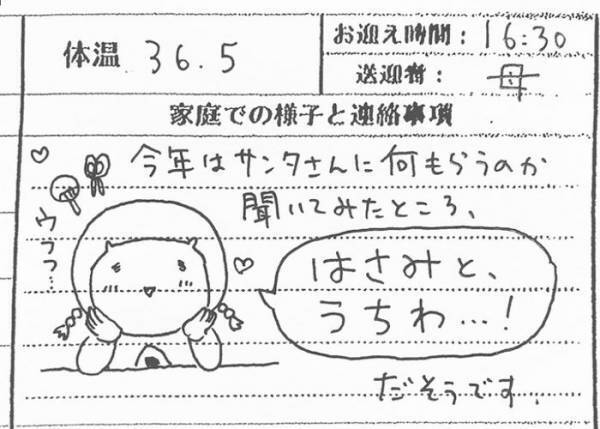 体温 36.5
お迎え時間: 16:30
送迎者: 母
家庭での様子と連絡事項
今年はサンタさんに何もらうのか
聞いてみたところ、
ウフフ…
はさみと、
うちわ…!
だそうです。